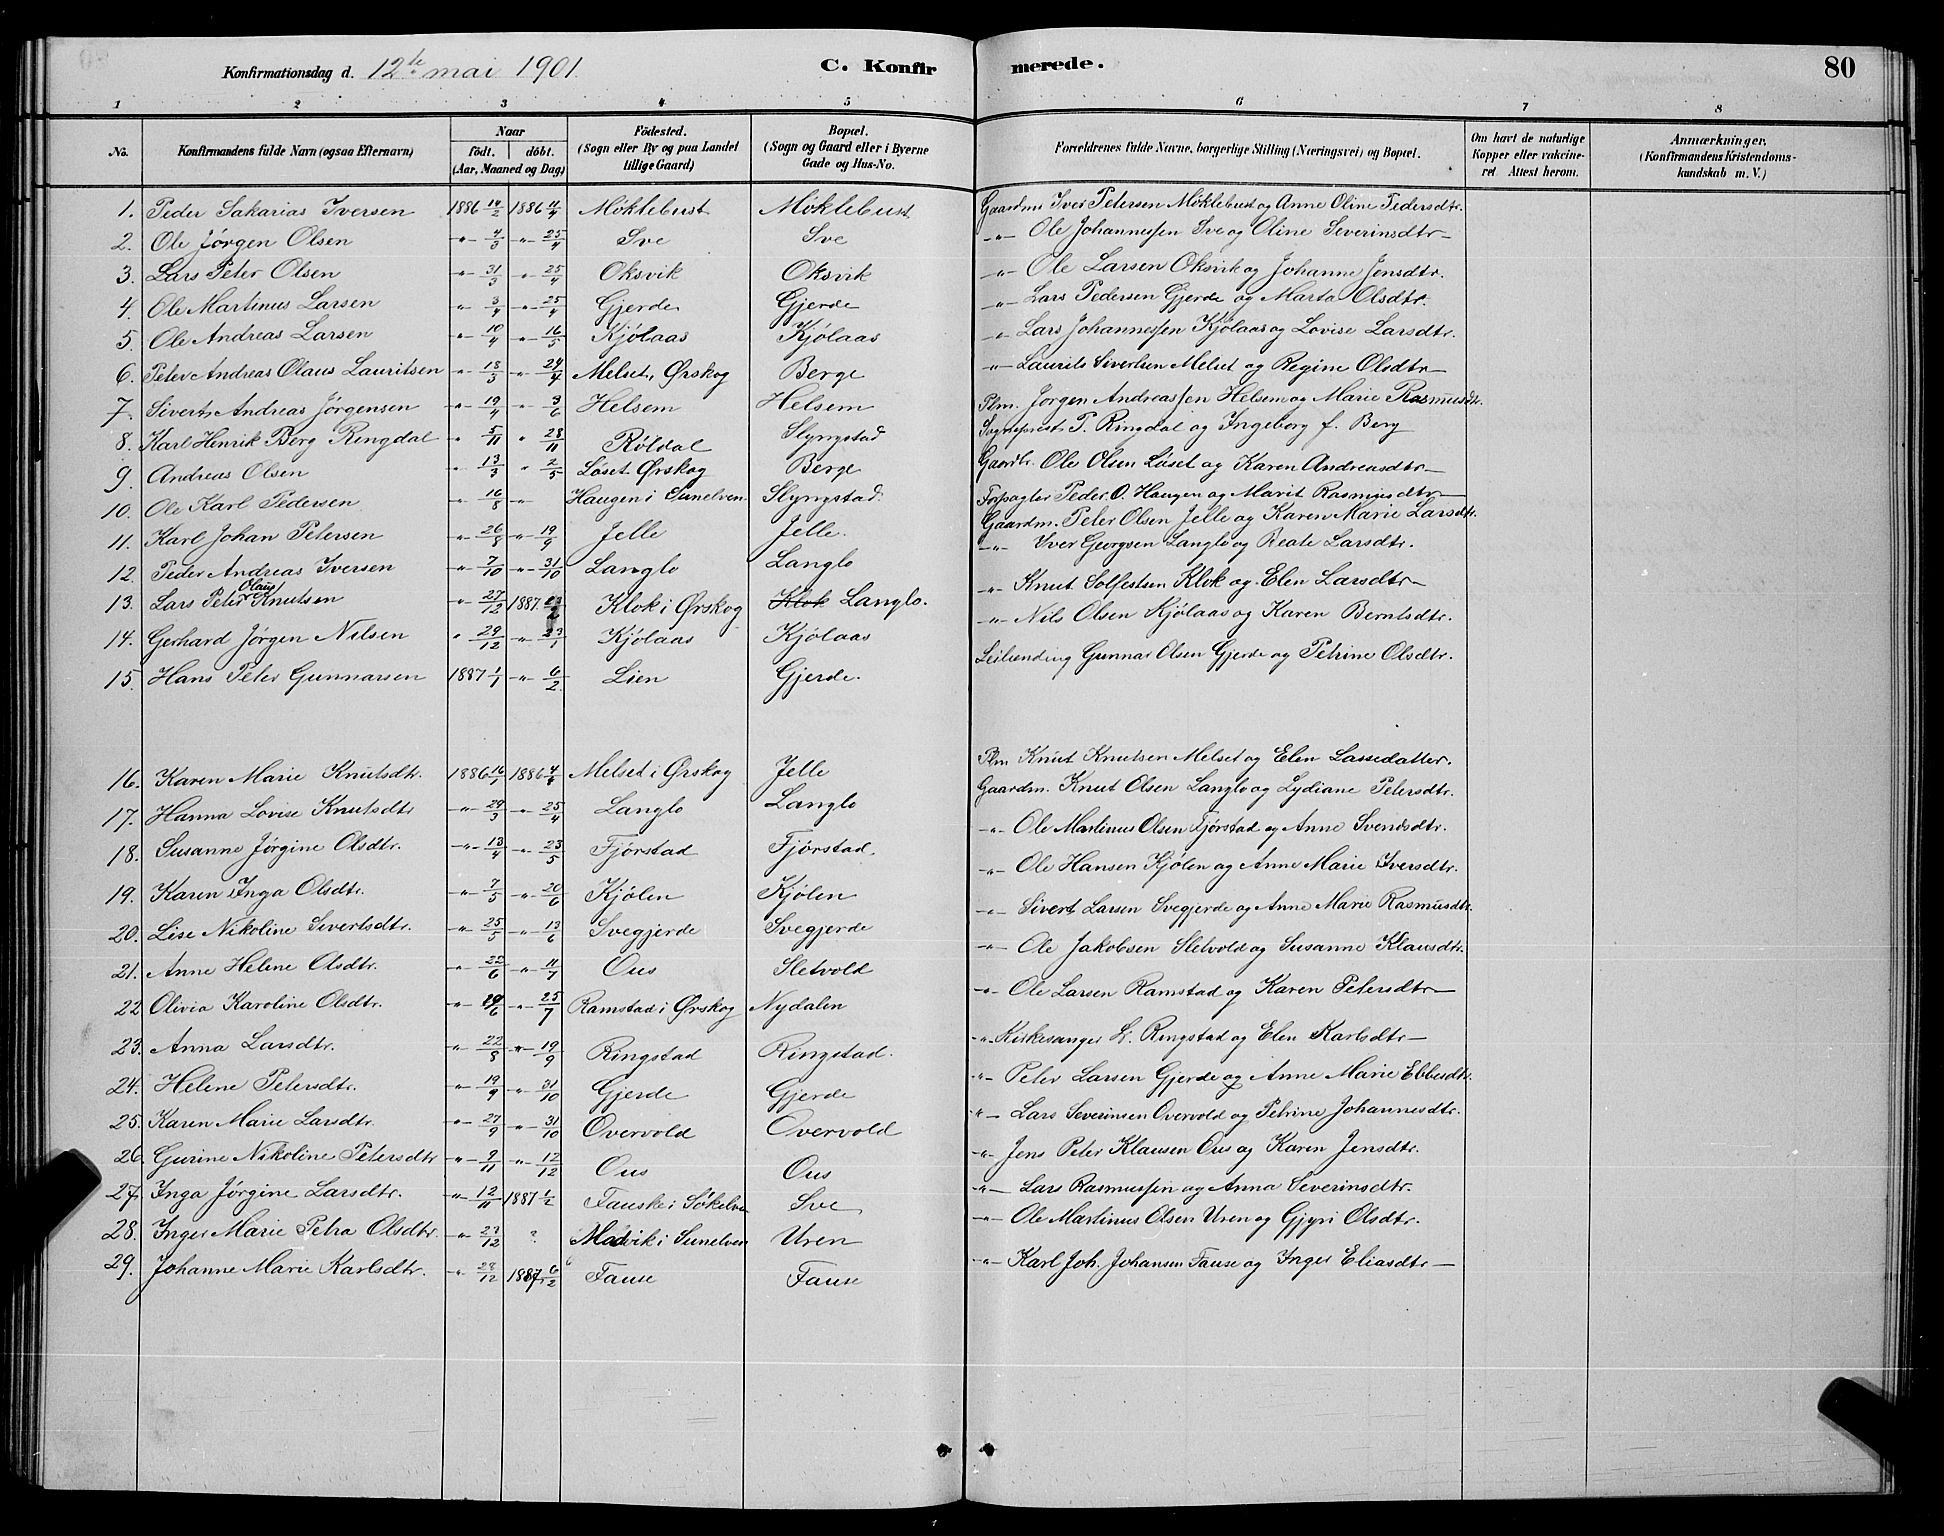 Konfirmationsdag d. 12te mai 1901. C. Konfirmerede. 80
1 2 3 4 5 6 7 8
No. Konfirmandens fulde Navn (ogsaa Efternavn) Naar födt. döbt. (Aar, Maaned og Dag) Födested. (Sogn eller By og paa Landet tillige Gaard) Bopæl. (Sogn og Gaard eller i Byerne Gade og Hus-No. Forældrenes fulde Navne, borgerlige Stilling (Næringsvei) og Bopæl. Om havt de naturlige Kopper eller vakcineret. Attest herom. Anmærkninger. (Konfirmandens Kristendomskundskab m. V.)
1. Peder Sakarias Iversen 1886 14/2 1886 11/4 Möklebust Möklebust Gaardm. Iver Petersen Möklebust og Anne Oline Pedersdtr.
2. Ole Jörgen Olsen -"- 4/3 -"- 25/4 Sve Sve -"- Ole Johannessen Sve og Oline Severinsdtr
3. Lars Peter Olsen -"- 31/3 -"- 25/4 Oksvik Oksvik -"- Ole Larsen Oksvik og Johanne Jensdtr.
4. Ole Martinus Larsen " 3/4 -"- 25/4 Gjerde Gjerde -"- Lars Pedersen Gjerde og Marta Olsdtr.
5. Ole Andreas Larsen -"- 10/4 -"- 16/5 Kjölaas Kjölaas -"- Lars Johannessen Kjölaas og Lovise Larsdtr.
6. Peter Andreas Olaus Lauritsen -"- 18/3 -"- 24/4 Melset, Ørskog Berge -"- Laurits Sivertsen Melset og Regine Olsdtr
7. Sivert Andreas Jörgensen -"- 19/4 -"- 3/6 Helsem Helsem Plm. Jörgen Andreassen Helsem og Marie Rasmusdtr.
8. Karl Henrik Berg Ringdal -"- 5/11 " 28/11 Röldal Slyngstad Sogneprest P. Ringdal og Ingeborg f. Berg
9. Andreas Olsen " 13/3 " 2/5 Löset Ørskog Berge Gaardbr. Ole Olsen Löset og Karen Andreasdtr
10. Ole Karl Pedersen -"- 16/8 -"- Haugen i Sunelven Slyngstad. Forpagter Peder O. Haugen og Marit Rasmusdtr
11. Karl Johan Petersen " 26/8 -"- 19/9 Jelle Jelle. Gaardm. Peter Olsen Jelle og Karen Marie Larsdtr.
12. Peder Andreas Iversen -"- 7/10 -"- 31/10 Langlo Langlo -"- Iver Georgsen Langlo og Beate Larsdtr.
13. Lars Peter Olaus Knutsen -"- 27/12 1887. Klok i Ørskog Klok Langlo. -"- Knut Solfestsen Klok og Elen Larsdtr
14. Gerhard Jörgen Nilsen " 29/12 -"- Kjölaas Kjölaas -"- Nils Olsen Kjölaas og Karen Berntsdtr.
15. Hans Peter Gunnarsen 1887 1/1 -"- 6/2 Lien Gjerde. Leilending Gunnar Olsen Gjerde og Petrine Olsdtr.
16. Karen Marie Knutsdtr. 1886 16/1 1886 4/4 Melset i Ørskog Jelle Plm Knut Knutsen Melset og Elen Lassedatter.
17. Hanna Lovise Knutsdtr -"- 29/3 -"- 25/4 Langlo Langlo Gaardm. Knut Olsen Langlo og Lydiane Petersdtr.
18. Susanne Jörgine Olsdtr. -"- 13/4 -"- 23/5 Fjörstad Fjörstad. -"- Ole Martinus Olsen Fjörstad og Anne Svendsdtr.
19. Karen Inga Olsdtr. -"- 7/5 -"- 20/6 Kjölen Kjölen -"- Ole Hansen Kjölen og Anne Marie Iversdtr.
20. Lise Nikoline Sivertsdtr. -"- 25/5 -"- 13/6 Svegjerde Svegjerde -"- Sivert Larsen Svegjerde og Anne Marie Rasmusdtr.
21. Anne Helene Olsdtr. -"- 22/6 -"- 11/7 Ous Sletvold -"- Ole Jakobsen Sletvold og Susanne Klausdtr.
22 Olivia Karoline Olsdtr. -"- 29/6 -"- 25/7 Ramstad i Ørskog Nydalen -"- Ole Larsen Ramstad og Karen Petersdtr
23. Anna Larsdtr. " 22/8 -"- 19/9 Ringstad Ringstad. -"- Kirkesanger L. Ringstad og Elen Karlsdtr
24. Helene Petersdtr. -"- 19/9 -"- 31/10 Gjerde Gjerde -"- Peter Larsen Gjerde og Anne Marie Ebbesdtr.
25. Karen Marie Larsdtr. -"- 27/9 -"- 31/10 Overvold Overvold -"- Lars Severinsen Overvold og Petrine Johannesdtr.
26. Gurine Nikoline Petersdtr -"- 9/11 -"- 12/12 Ous Ous -"- Jens Peter Klausen Ous og Karen Jensdtr.
27. Inga Jörgine Larsdtr. -"- 12/11 1887 1/2 Fauske i Sökelven Sve -"- Lars Rasmussen og Anna Severinsdtr.
28. Inger Marie Petra Olsdtr. -"- 27/12 ? i Sunelven Uren -"- Ole Martinus Olsen Uren og Gjyri Olsdtr.
29. Johanne Marie Karlsdtr. -"- 28/12 1887 6/2 Fause Fause -"- Karl Joh. Johansen Fause og Inger Eliasdtr